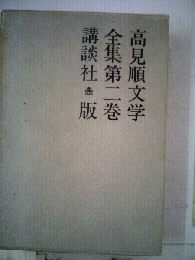 高見順文学
全集第二巻
講談社版